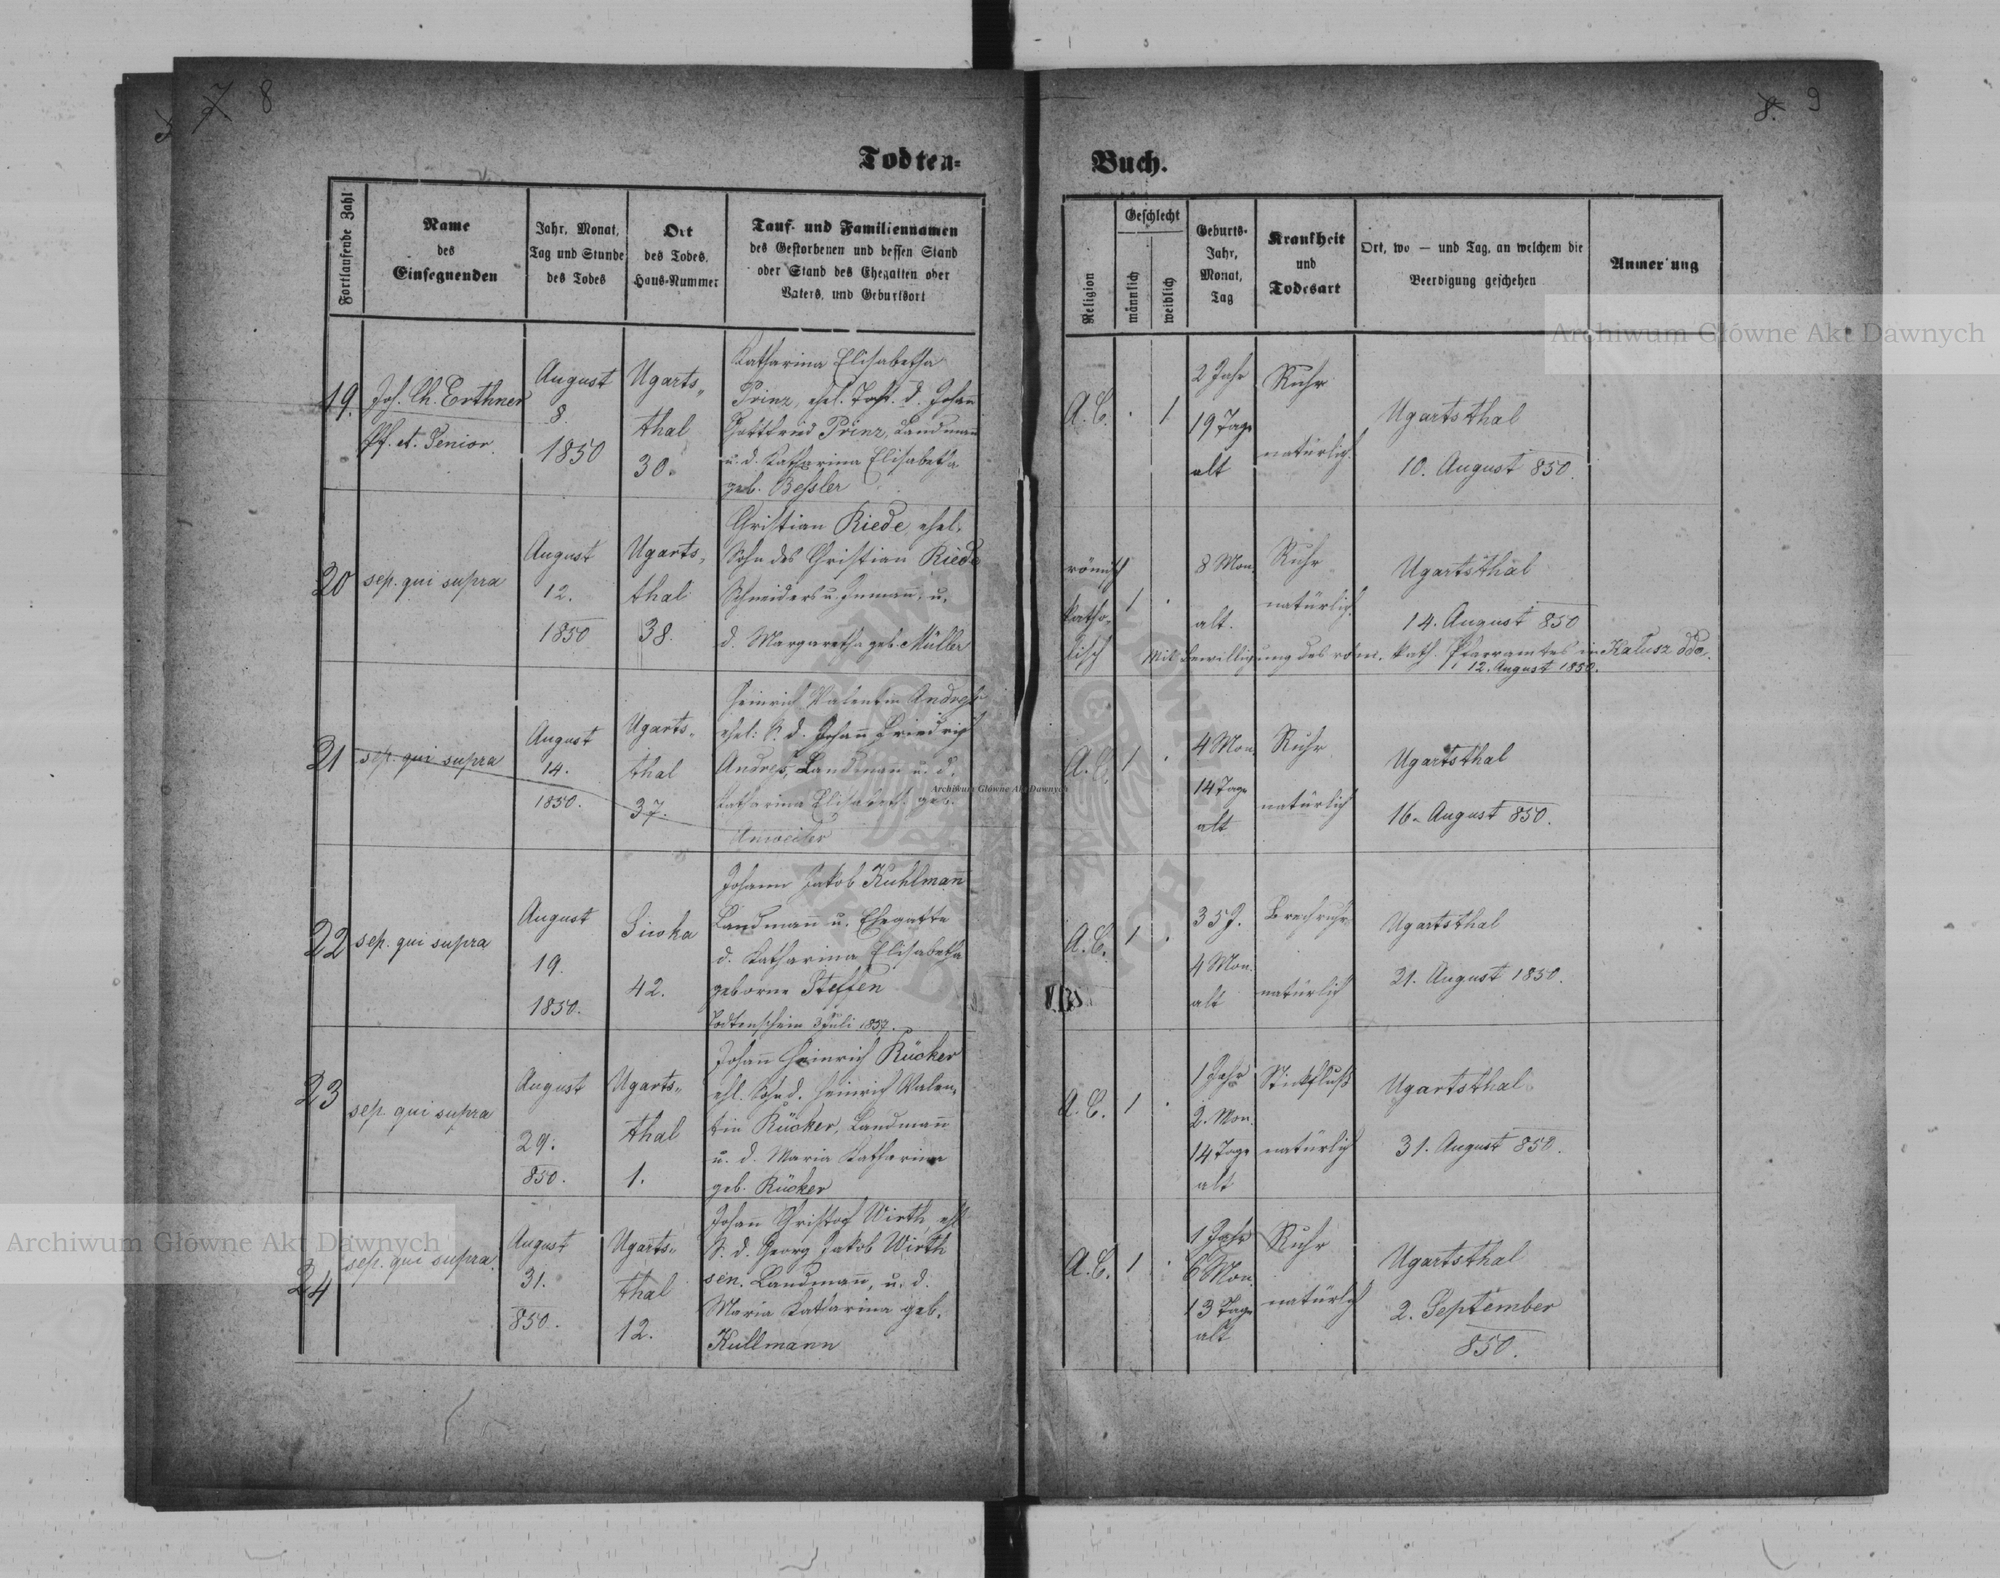 7 8
8. 9
Todten-
Buch.
Fortlaufende Zahl
Name
des
Einsegnenden
Jahr, Monat,
Tag und Stunde
des Todes
Ort
des Todes,
Haus-Nummer
Tauf- und Familiennamen
des Gestorbenen und dessen Stand
oder Stand des Ehegatten oder
Vaters, und Geburtsort
Religion
Geschlecht
männlich
weiblich
Geburts-
Jahr,
Monat,
Tag
Krankheit
und
Todesart
Ort, wo — und Tag, an welchem die
Beerdigung geschehen
Anmer ung
19.
Joh. Ch. Erthner
Pf. et. Senior.
August
8.
1850
Ugarts-
thal
30.
Katharina Elisabetha
Prinz, ehel. Toht. d. Johann
Gottfried Prinz, Landmann
u. d. Katharina Elisabetha
geb. Beßler
A. C. . 1
2 Jahr
19 Tage
alt
Ruhr
natürlich.
Ugartsthal
10. August 850.
20
sep. qui supra
August
12.
1850
Ugarts-
thal
38.
Christian Riede, ehel.
Sohn des Christian Riede
Schneiders u. Inmann, u.
d. Margaretha geb. Müller
römisch
katho-
lisch
1 .
8 Mon.
alt.
Ruhr
natürlich.
Ugartsthal
14. August 850
Mit Bewilligung des röm. kath. Pfarramtes in Kalusz ddo.
12. August 1850.
21
sep. qui supra
August
14.
1850.
Ugarts-
thal
37.
Heinrich Valentin Andres
ehel. S. d. Johann Friedrich
Andres, Landmann u. d.
Katharina Elisabeth geb.
Anweiler
A. C. 1 .
4 Mon.
14 Tage
alt
Ruhr
natürlich
Ugartsthal
16. August 850.
22
sep. qui supra
August
19.
1850.
Siwka
42.
Johann Jakob Kuhlmann
Landmann u. Ehegatte
d. Katharina Elisabetha
geborne Steffen
Todtenschein 3 Juli 1857.
A. C. 1 .
35 J.
4 Mon.
alt
Brechruhr
natürlich
Ugartsthal
21. August 1850.
23
sep. qui supra
August
29.
850.
Ugarts-
thal
1.
Johann Heinrich Rücker
ehl. Sohn d. Heinrich Valen-
tin Rücker, Landmann
u. d. Maria Katharina
geb. Rücker
A. C. 1 .
1 Jahr
2. Mon.
14 Tage
alt
Stickfluß
natürlich
Ugartsthal
31. August 850.
24
sep. qui supra.
August
31.
850.
Ugarts-
thal
12.
Johann Christof Wirth, ehl
S. d. Georg Jakob Wirth
sen. Landmann, u. d.
Maria Katharina geb.
Kullmann
A. C. 1 .
1 Jahr
6 Mon.
13 Tage
alt
Ruhr
natürlich
Ugartsthal
2. September
850.
Archiwum Główne Akt Dawnych
Archiwum Główne Akt Dawnych
Archiwum Główne Akt Dawnych